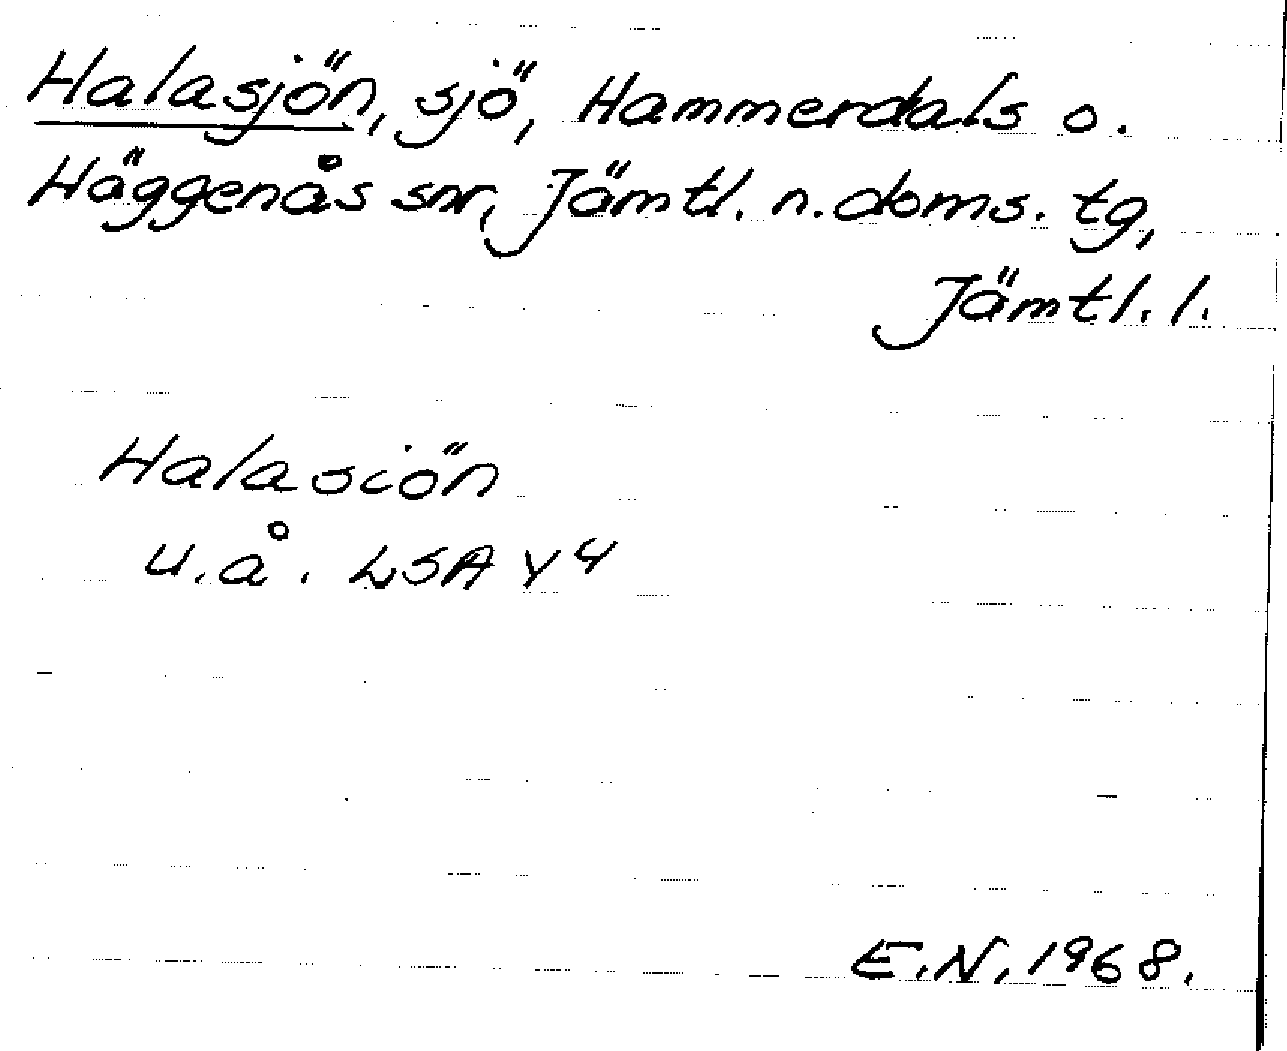 Halasjön, sjö, Hammerdals o.
Häggenås snr, Jämtl. n. doms. tg,
Jämtl. l.
Halasiön
u. å. LSA Y 4
E.N. 1968.